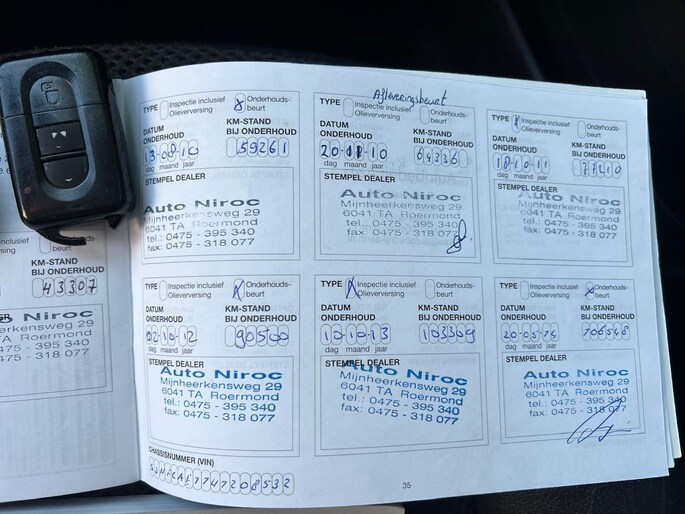 Afleveringsbeurt
TYPE Inspectie inclusief Olieverversing Onderhouds- beurt
DATUM ONDERHOUD KM-STAND BIJ ONDERHOUD
13-08-10 59261
dag maand jaar
STEMPEL DEALER
Auto Niroc
Mijnheerkensweg 29
6041 TA Roermond
tel.: 0475 - 395 340
fax: 0475 - 318 077
TYPE Inspectie inclusief Olieverversing Onderhouds- beurt
DATUM ONDERHOUD KM-STAND BIJ ONDERHOUD
20-11-10 64336
dag maand jaar
STEMPEL DEALER
Auto Niroc
Mijnheerkensweg 29
6041 TA Roermond
tel.: 0475 - 395 340
fax: 0475 - 318 077
TYPE Inspectie inclusief Olieverversing Onderhouds- beurt
DATUM ONDERHOUD KM-STAND BIJ ONDERHOUD
18-10-11 77210
dag maand jaar
STEMPEL DEALER
Auto Niroc
Mijnheerkensweg 29
6041 TA Roermond
tel.: 0475 - 395 340
fax: 0475 - 318 077
nclusief
Onderhouds-
beurt
KM-STAND
BIJ ONDERHOUD
43307
Niroc
erkensweg 29
Roermond
75 - 395 340
75 - 318 077
TYPE Inspectie inclusief Olieverversing Onderhouds- beurt
DATUM ONDERHOUD KM-STAND BIJ ONDERHOUD
02-10-12 90500
dag maand jaar
STEMPEL DEALER
Auto Niroc
Mijnheerkensweg 29
6041 TA Roermond
tel.: 0475 - 395 340
fax: 0475 - 318 077
TYPE Inspectie inclusief Olieverversing Onderhouds- beurt
DATUM ONDERHOUD KM-STAND BIJ ONDERHOUD
10-13 103309
dag maand jaar
STEMPEL DEALER
Auto Niroc
Mijnheerkensweg 29
6041 TA Roermond
tel.: 0475 - 395 340
fax: 0475 - 318 077
TYPE Inspectie inclusief Olieverversing Onderhouds- beurt
DATUM ONDERHOUD KM-STAND BIJ ONDERHOUD
20-05-14
dag maand jaar
STEMPEL DEALER
Auto Niroc
Mijnheerkensweg 29
6041 TA Roermond
tel.: 0475 - 395 340
fax: 0475 - 318 077
CHASSISNUMMER (VIN)
35